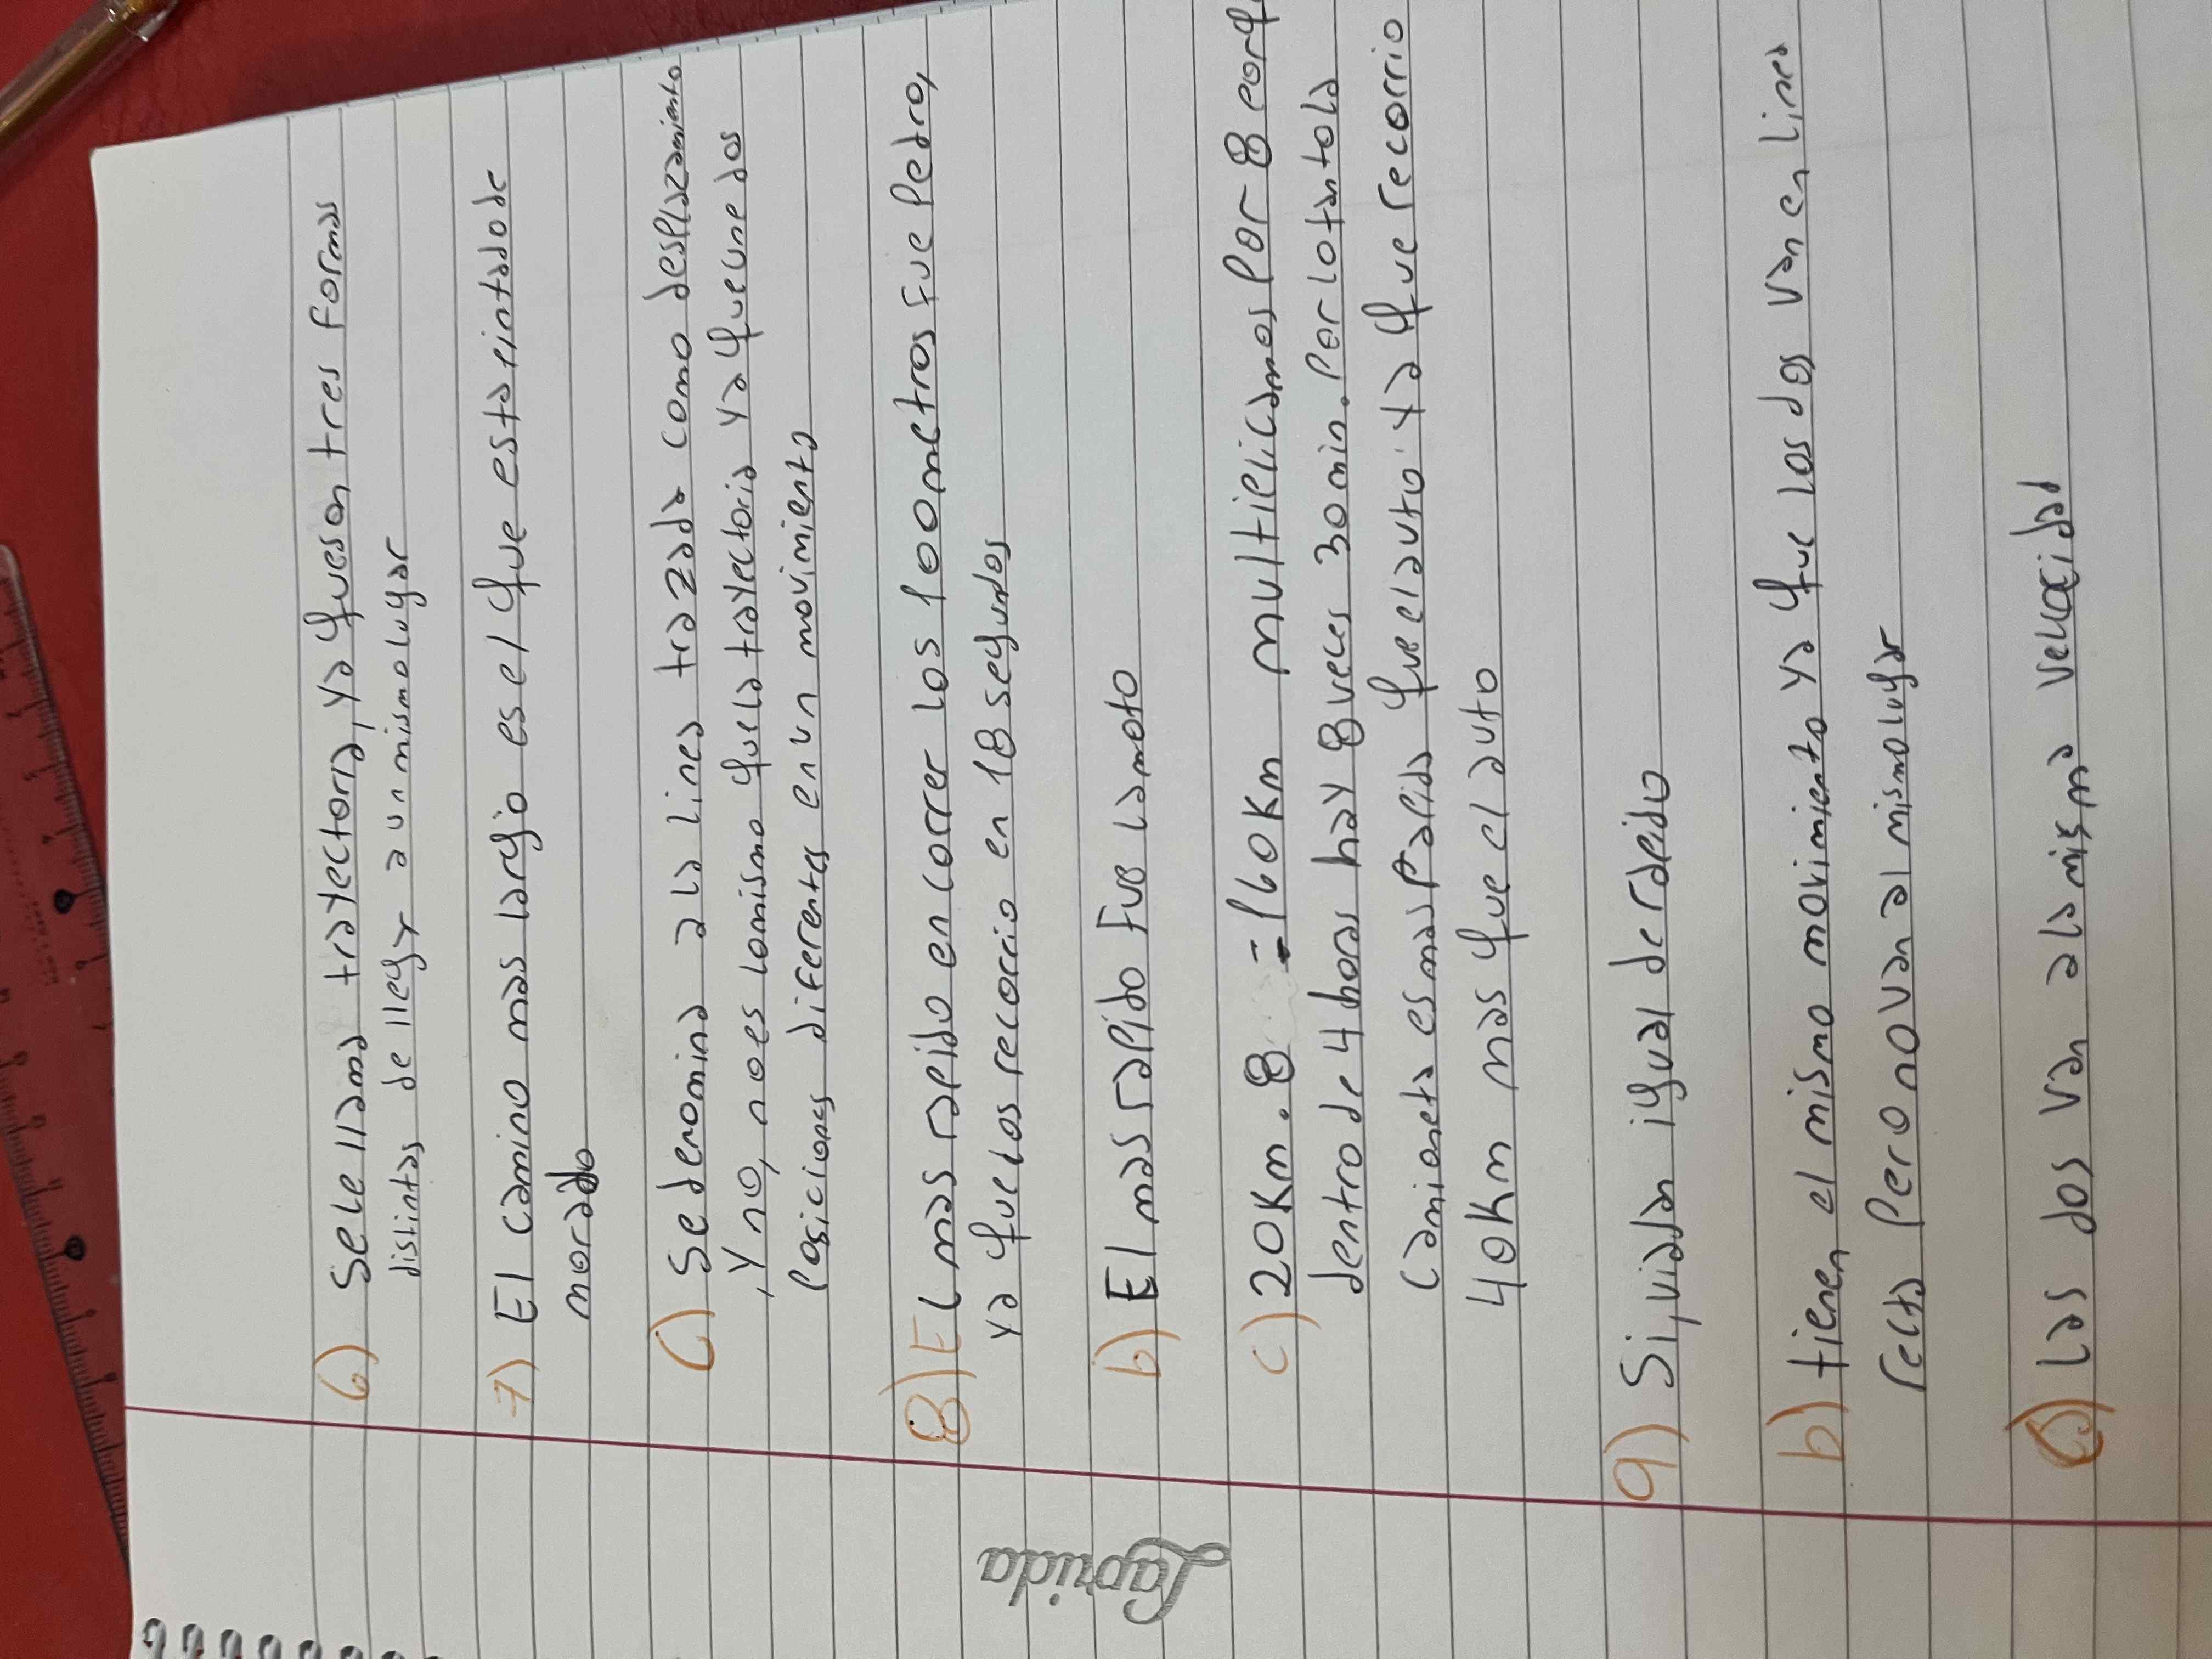 6) Se le llama trayectoria, ya que son tres formas
distintas de llegar a un mismo lugar
7) El camino mas largo es el que esta pintado de
morado
C) Se denomina a la linea trazada como desplazamiento
, y no, no es lo mismo que la trayectoria ya que une dos
posiciones diferentes en un movimiento
8) El mas rapido en correr los 100 metros fue Pedro,
ya que los recorrio en 18 segundos
b) El mas rapido fue la moto
c) 20Km . 8 = 160Km multiplicamos por 8 porq
dentro de 4 horas hay 8 veces 30 min. Por lo tanto la
camioneta es mas rapida que el auto ya que recorrio
40Km mas que el auto
9) Si, viajan igual de rapido
b) tienen el mismo movimiento ya que los dos van en linea
recta pero no van al mismo lugar
C) Las dos van a la misma velocidad
Laprida